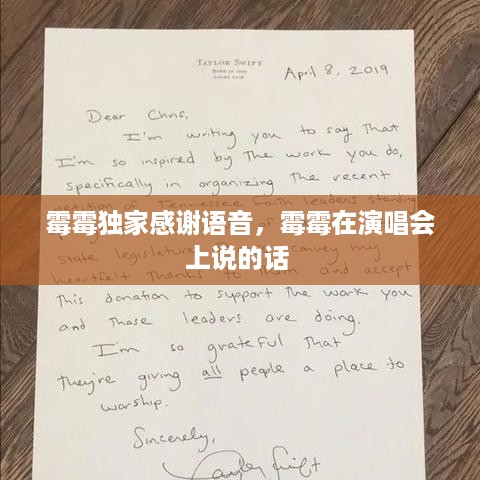 TAYLOR SWIFT
BORN IN 1989
LOVES CATS
April 8, 2019
Dear Chris,
I'm writing you to say that
I'm so inspired by the work you do,
specifically in organizing the recent
petition of Tennessee faith leaders standing
霉霉独家感谢语音，霉霉在演唱会
上说的话
state legislature
convey my
heartfelt thanks to them and accept
this donation to support the work you
and those leaders are doing.
I'm so grateful that
they're giving all people a place to
worship.
Sincerely,
Taylor Swift